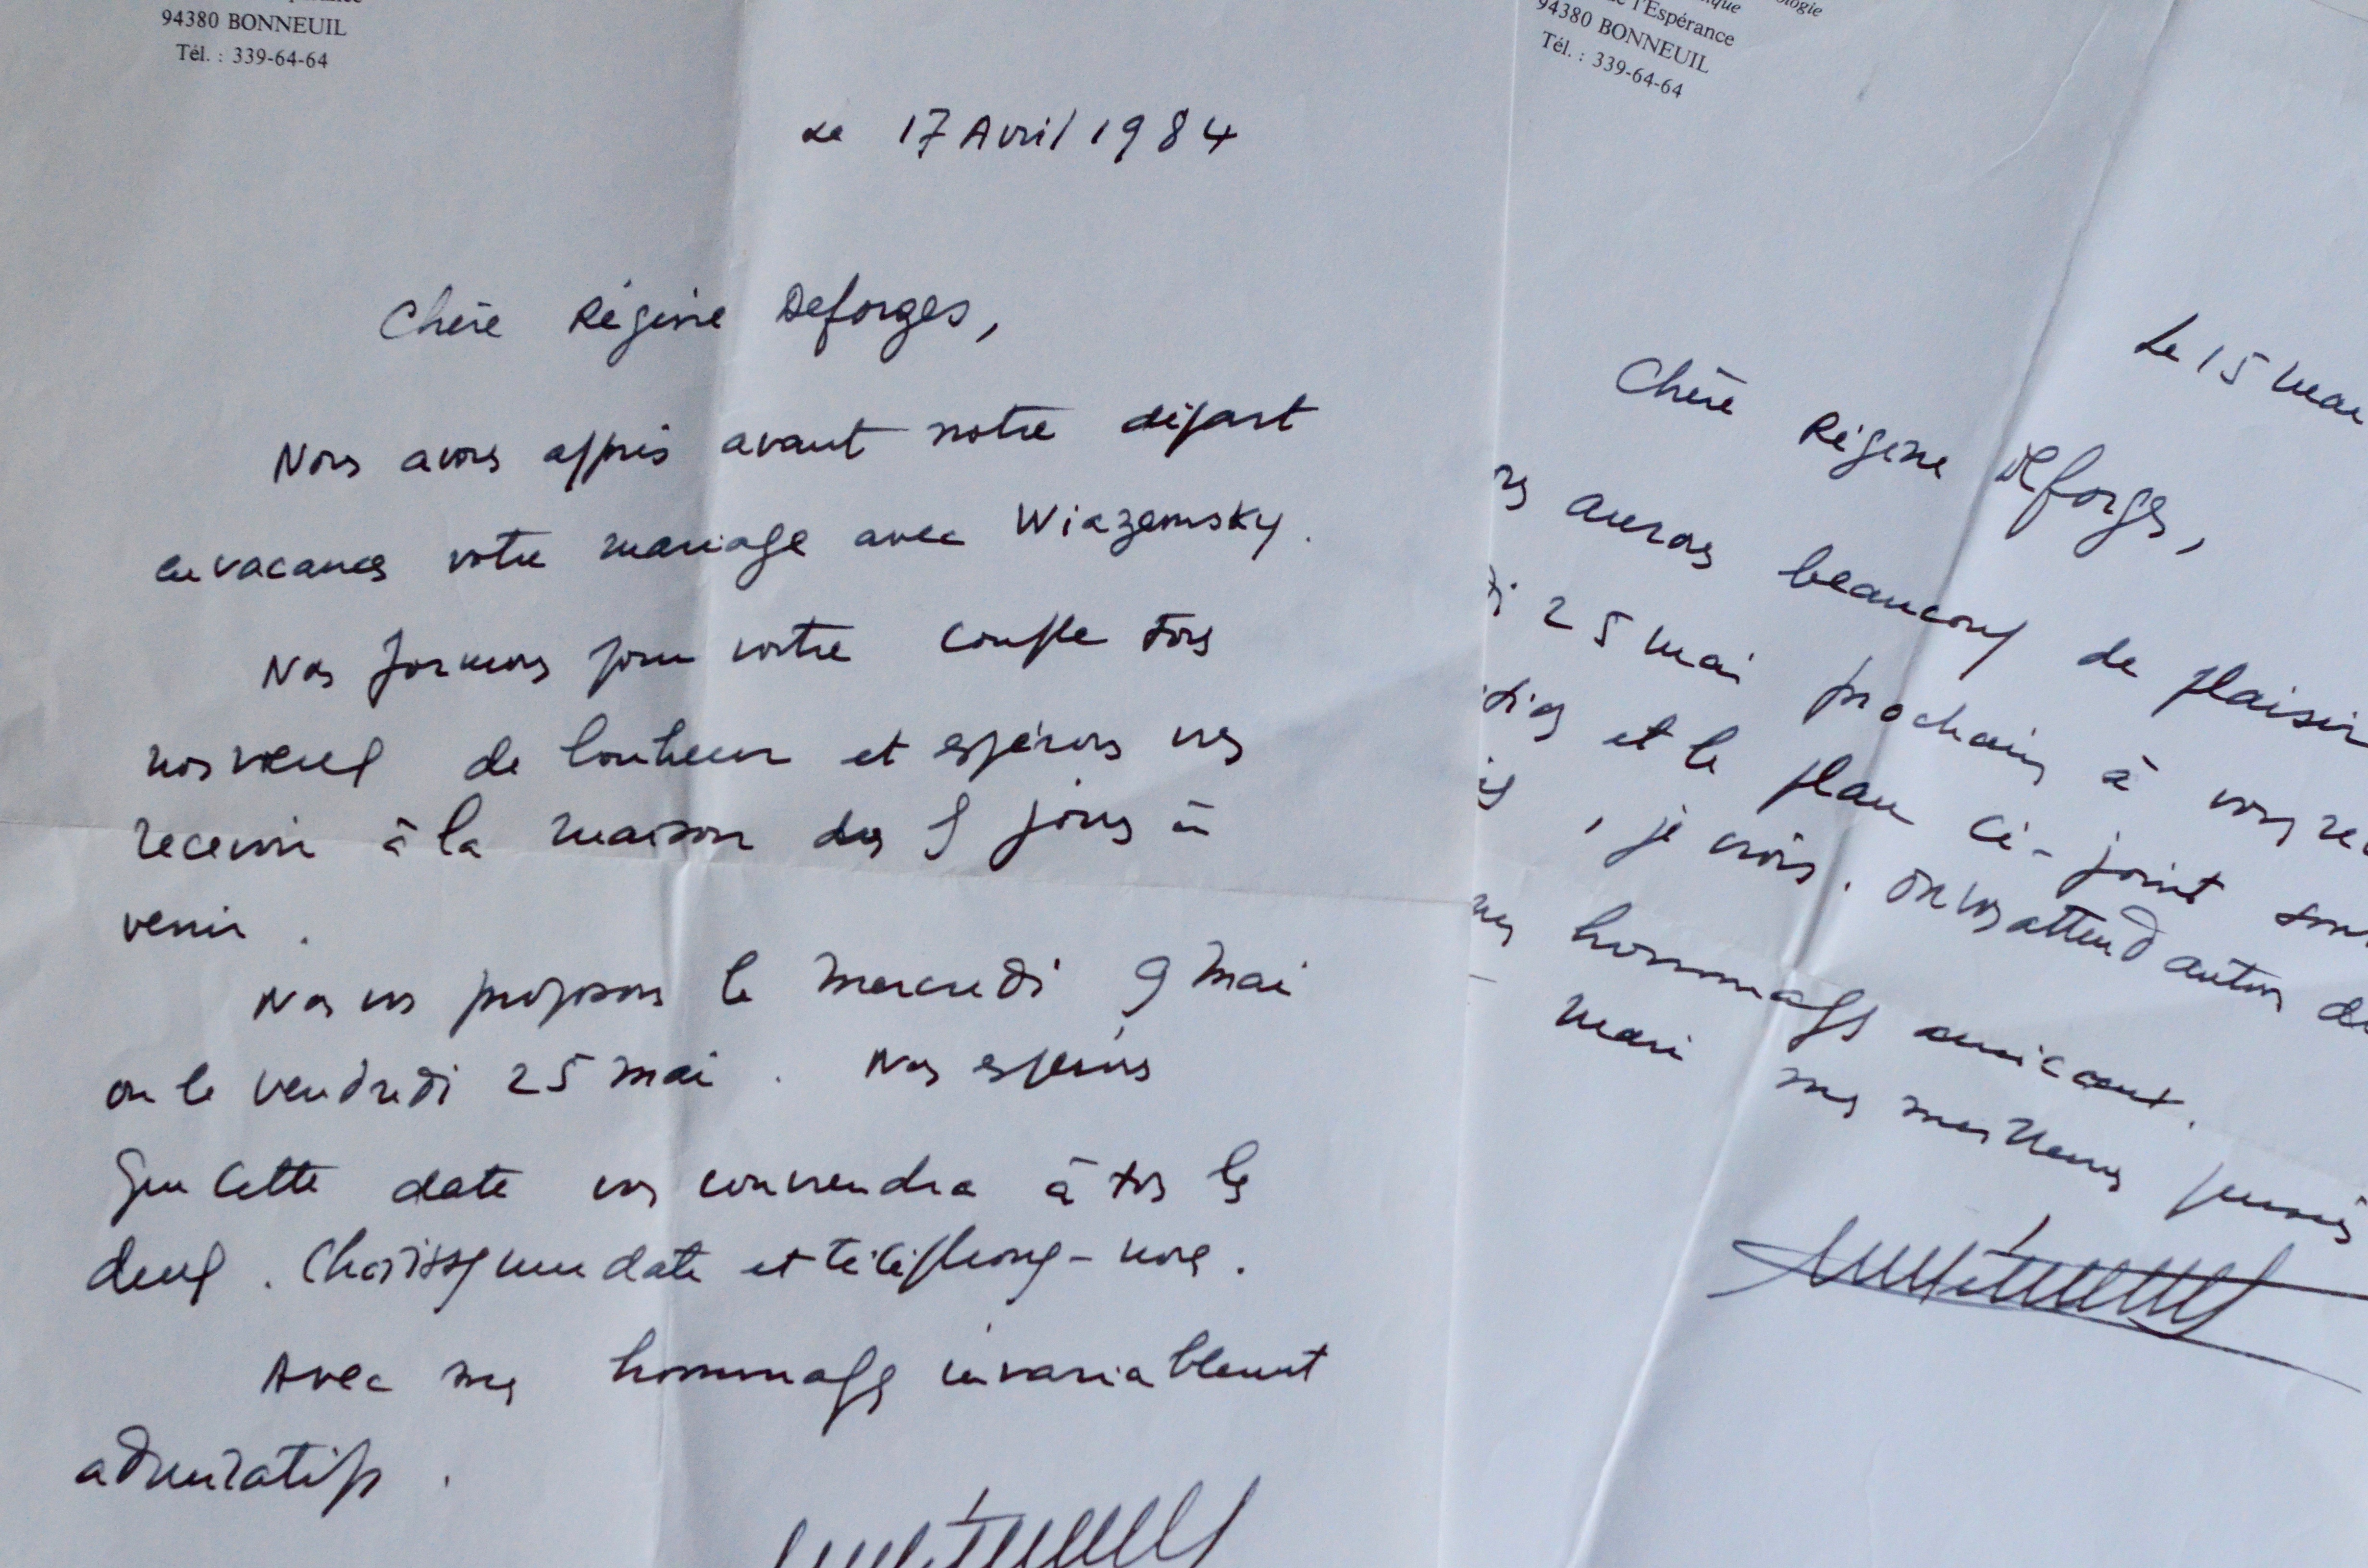 94380 BONNEUIL
Tél. : 339-64-64
Le 17 Avril 1984
Chère Régine Deforges,
Nous avons appris avant notre départ
en vacances votre mariage avec Wiazemsky.
Nos formons pour votre couple tous
nos vœux de bonheur et espérons vous
recevoir à la maison des jours à
venir.
Nous vous proposons le mercredi 9 mai
ou le vendredi 25 mai. Nous espérons
que cette date vous conviendra à tous les
deux. Choisissez une date et téléphonez-nous.
Avec mes hommages invariablement
admiratifs.
ologie
que
de l'Espérance
94380 BONNEUIL
Tél. : 339-64-64
Le 15 mai
Chère Régine Deforges,
aurons beaucoup de plaisir
25 mai prochain à vous re
et le plan ci-joint sont
, je crois. On vous attend autour de
hommages amicaux.
mari mes meilleurs